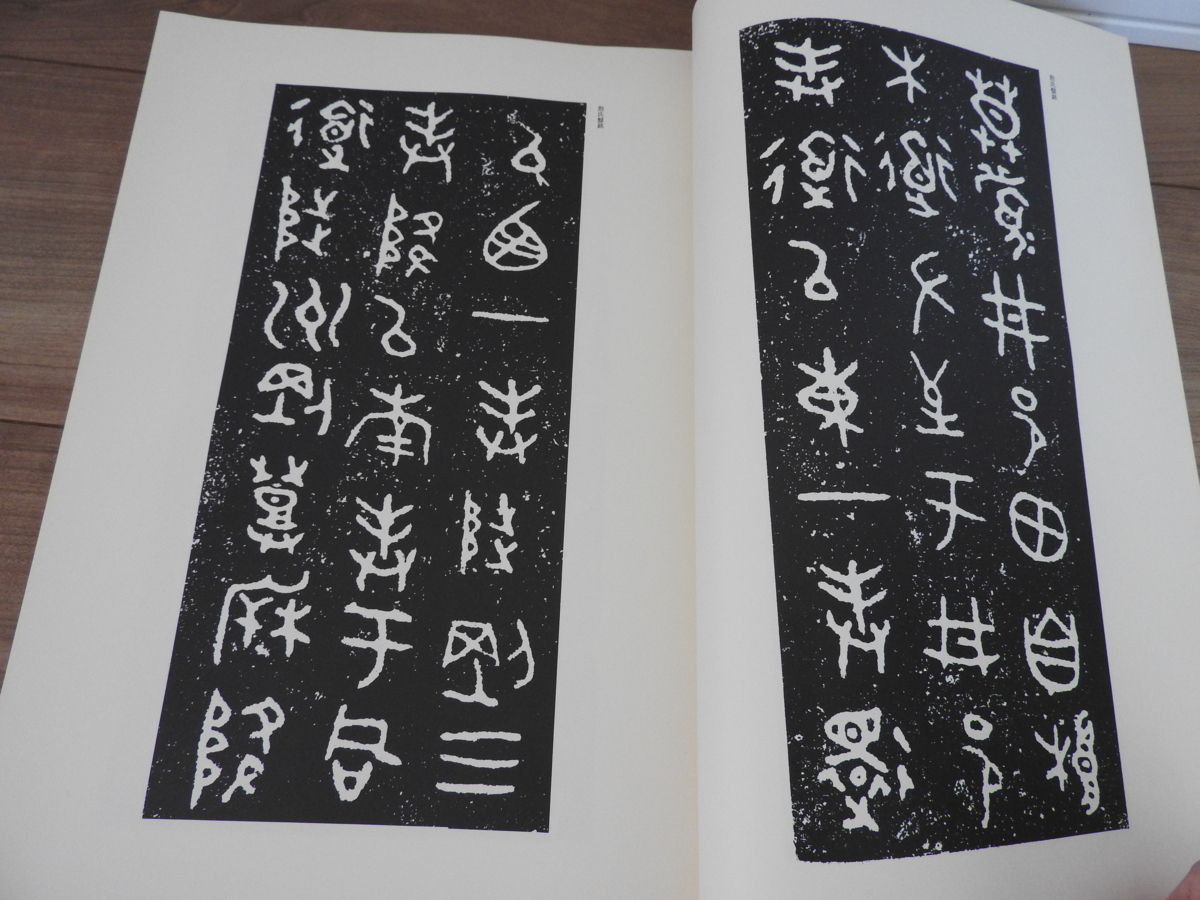 散氏盤銘
莫眉井邑田自根
木道左至于井邑
封道以東一封還
散氏盤銘
以西一封陟剛三
封降以南封于同
道陟州剛登降